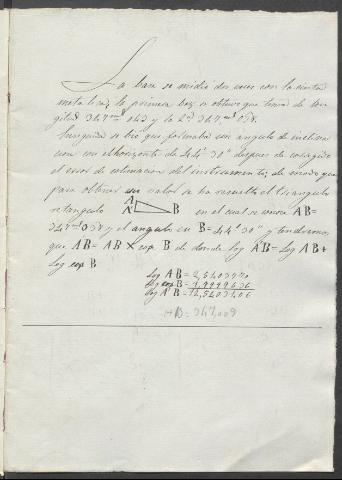 La base se midió dos veces con la cinta
metalica; la primera vez se obtuvo que tenia de lon
gitud 347 043 y la 2ª 347, 038.
Enseguida se vió que formaba un angulo de inclina
cion con el horizonte de 44' 30" despues de corregido
el error de colimacion del instrumento; de modo que
para obtener su valor se ha resuelto el triangulo
rectangulo A A' B en el cual se conoce AB=
347 038 y el angulo en B = 44' 30" y tendremos
que A'B = AB × cos B de donde log A'B = log AB +
log cos B
log AB = 2,5403770
log cos B = 1,9999636
log A'B = 2,5403406
A'B = 347,009